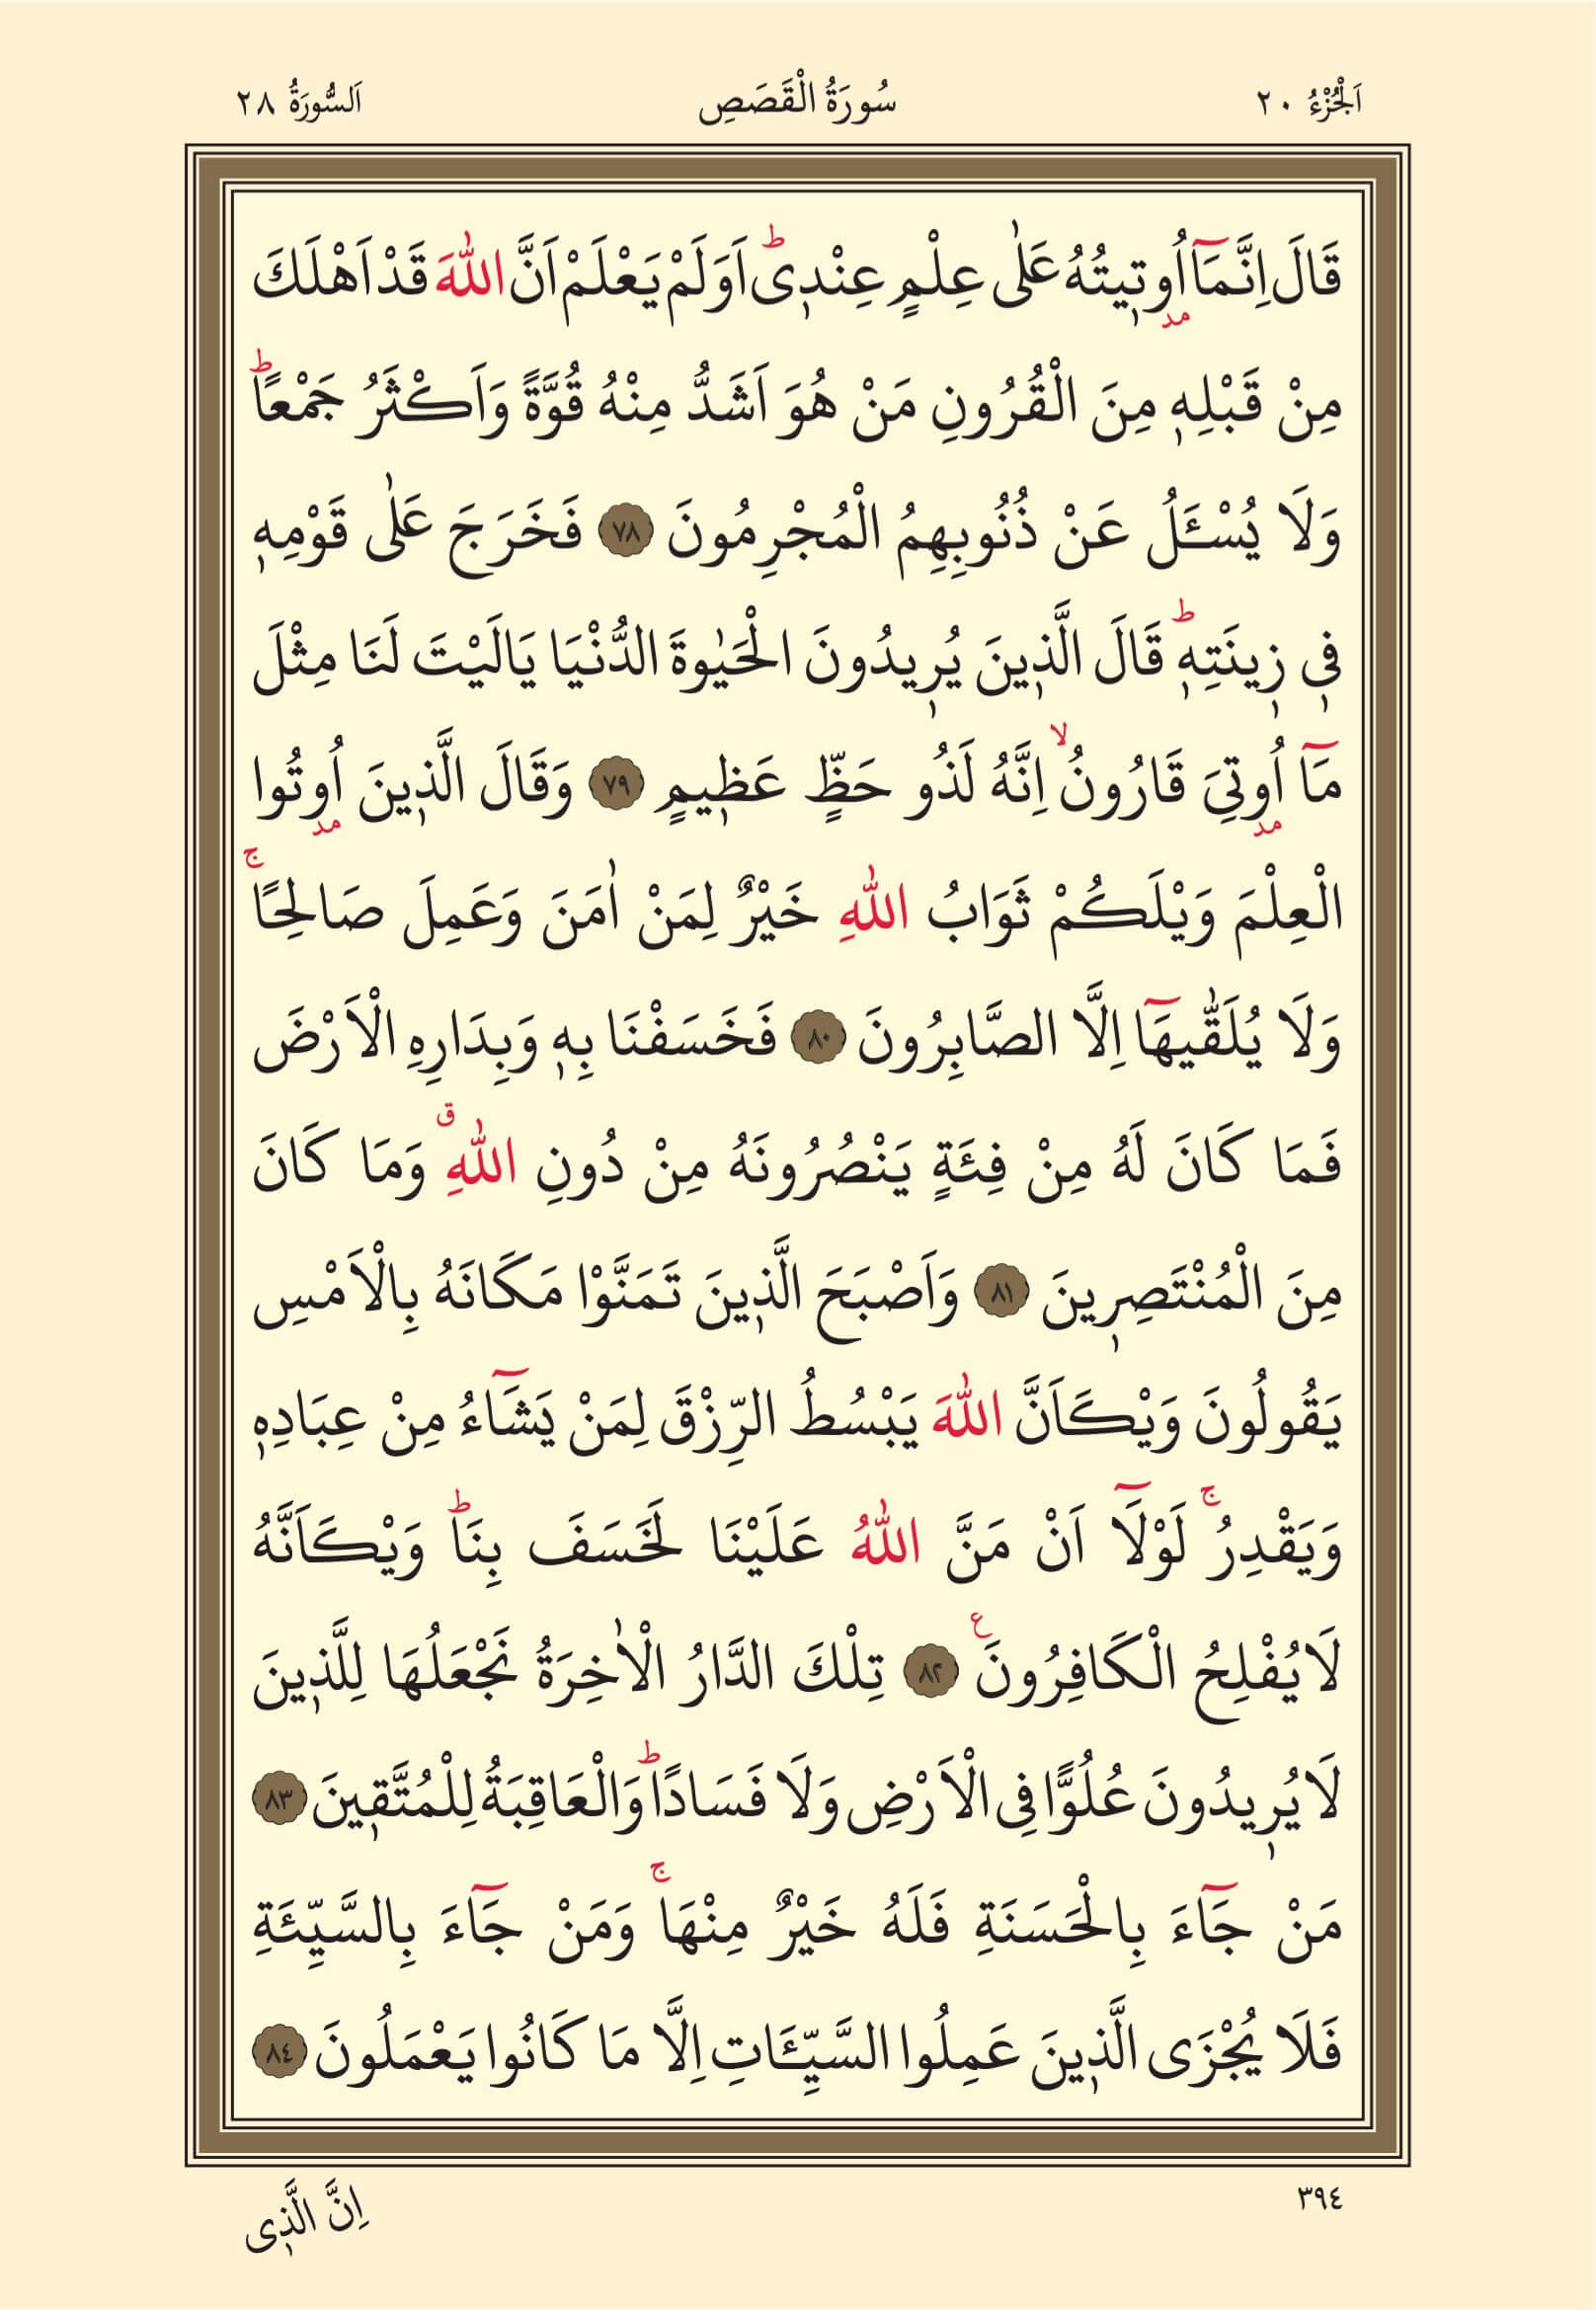 اَلْجُزْءُ ٢٠ سُورَةُ الْقَصَصِ اَلسُّورَةُ ٢٨
قَالَ اِنَّمَٓا اُو۫ت۪يتُهُ عَلٰى عِلْمٍ عِنْد۪يۜ اَوَلَمْ يَعْلَمْ اَنَّ اللّٰهَ قَدْ اَهْلَكَ
مِنْ قَبْلِه۪ مِنَ الْقُرُونِ مَنْ هُوَ اَشَدُّ مِنْهُ قُوَّةً وَاَكْثَرُ جَمْعًاۜ
وَلَا يُسْـَٔلُ عَنْ ذُنُوبِهِمُ الْمُجْرِمُونَ ﴿٧٨﴾ فَخَرَجَ عَلٰى قَوْمِه۪
ف۪ي ز۪ينَتِه۪ۜ قَالَ الَّذ۪ينَ يُر۪يدُونَ الْحَيٰوةَ الدُّنْيَا يَالَيْتَ لَنَا مِثْلَ
مَٓا اُو۫تِيَ قَارُونُۙ اِنَّهُ لَذُو حَظٍّ عَظ۪يمٍ ﴿٧٩﴾ وَقَالَ الَّذ۪ينَ اُو۫تُوا
الْعِلْمَ وَيْلَكُمْ ثَوَابُ اللّٰهِ خَيْرٌ لِمَنْ اٰمَنَ وَعَمِلَ صَالِحًاۚ
وَلَا يُلَقّٰيهَٓا اِلَّا الصَّابِرُونَ ﴿٨٠﴾ فَخَسَفْنَا بِه۪ وَبِدَارِهِ الْاَرْضَ
فَمَا كَانَ لَهُ مِنْ فِئَةٍ يَنْصُرُونَهُ مِنْ دُونِ اللّٰهِۗ وَمَا كَانَ
مِنَ الْمُنْتَصِر۪ينَ ﴿٨١﴾ وَاَصْبَحَ الَّذ۪ينَ تَمَنَّوْا مَكَانَهُ بِالْاَمْسِ
يَقُولُونَ وَيْكَاَنَّ اللّٰهَ يَبْسُطُ الرِّزْقَ لِمَنْ يَشَٓاءُ مِنْ عِبَادِه۪
وَيَقْدِرُۚ لَوْلَٓا اَنْ مَنَّ اللّٰهُ عَلَيْنَا لَخَسَفَ بِنَاۜ وَيْكَاَنَّهُ
لَا يُفْلِحُ الْكَافِرُونَ۟ ﴿٨٢﴾ تِلْكَ الدَّارُ الْاٰخِرَةُ نَجْعَلُهَا لِلَّذ۪ينَ
لَا يُر۪يدُونَ عُلُوًّا فِي الْاَرْضِ وَلَا فَسَادًاۜ وَالْعَاقِبَةُ لِلْمُتَّق۪ينَ ﴿٨٣﴾
مَنْ جَٓاءَ بِالْحَسَنَةِ فَلَهُ خَيْرٌ مِنْهَاۚ وَمَنْ جَٓاءَ بِالسَّيِّئَةِ
فَلَا يُجْزَى الَّذ۪ينَ عَمِلُوا السَّيِّـَٔاتِ اِلَّا مَا كَانُوا يَعْمَلُونَ ﴿٨٤﴾
٣٩٤ اِنَّ الَّذ۪ي